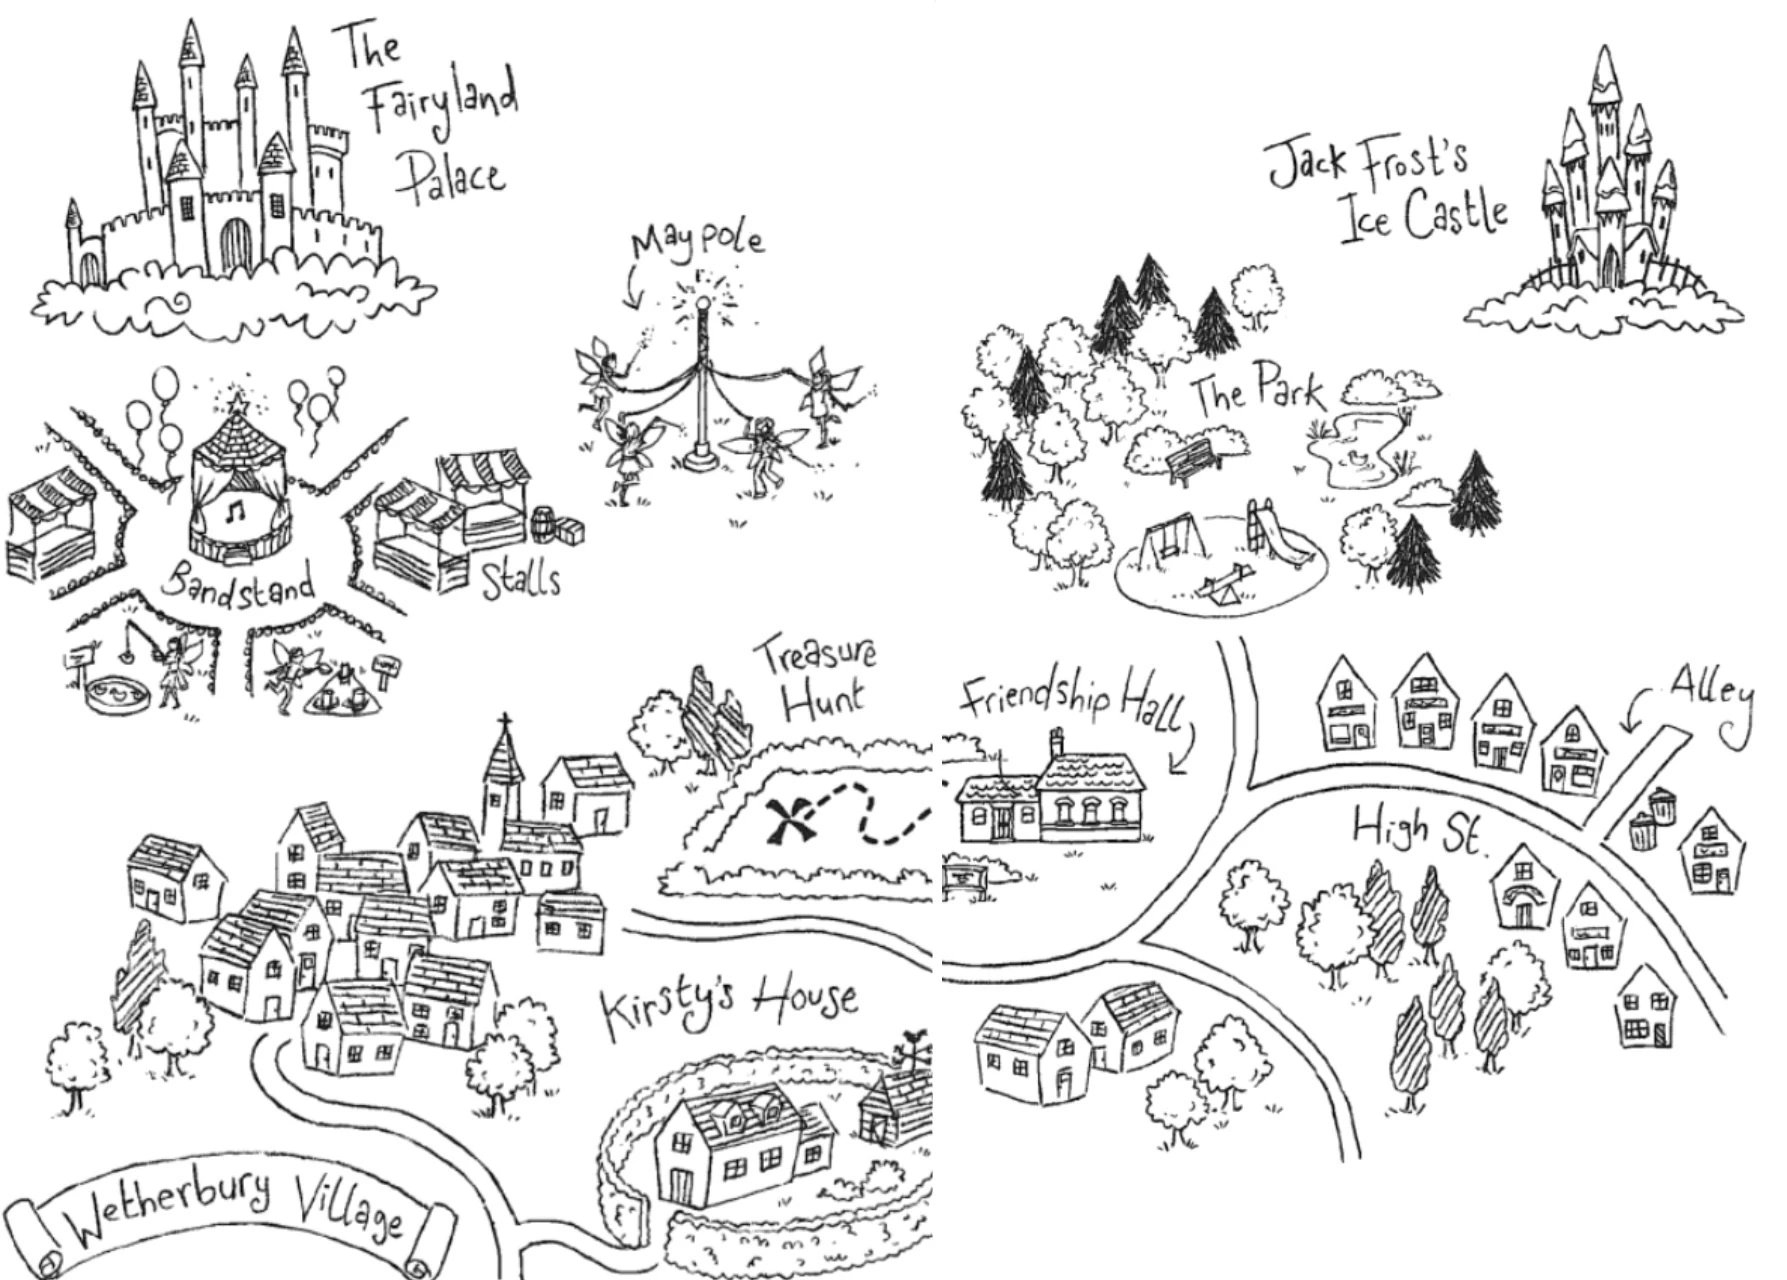 The
Fairyland
Palace
Maypole
Jack Frost's
Ice Castle
The Park
Bandstand
Stalls
Treasure
Hunt
Friendship Hall
Alley
High St.
Kirsty's House
Wetherbury Village